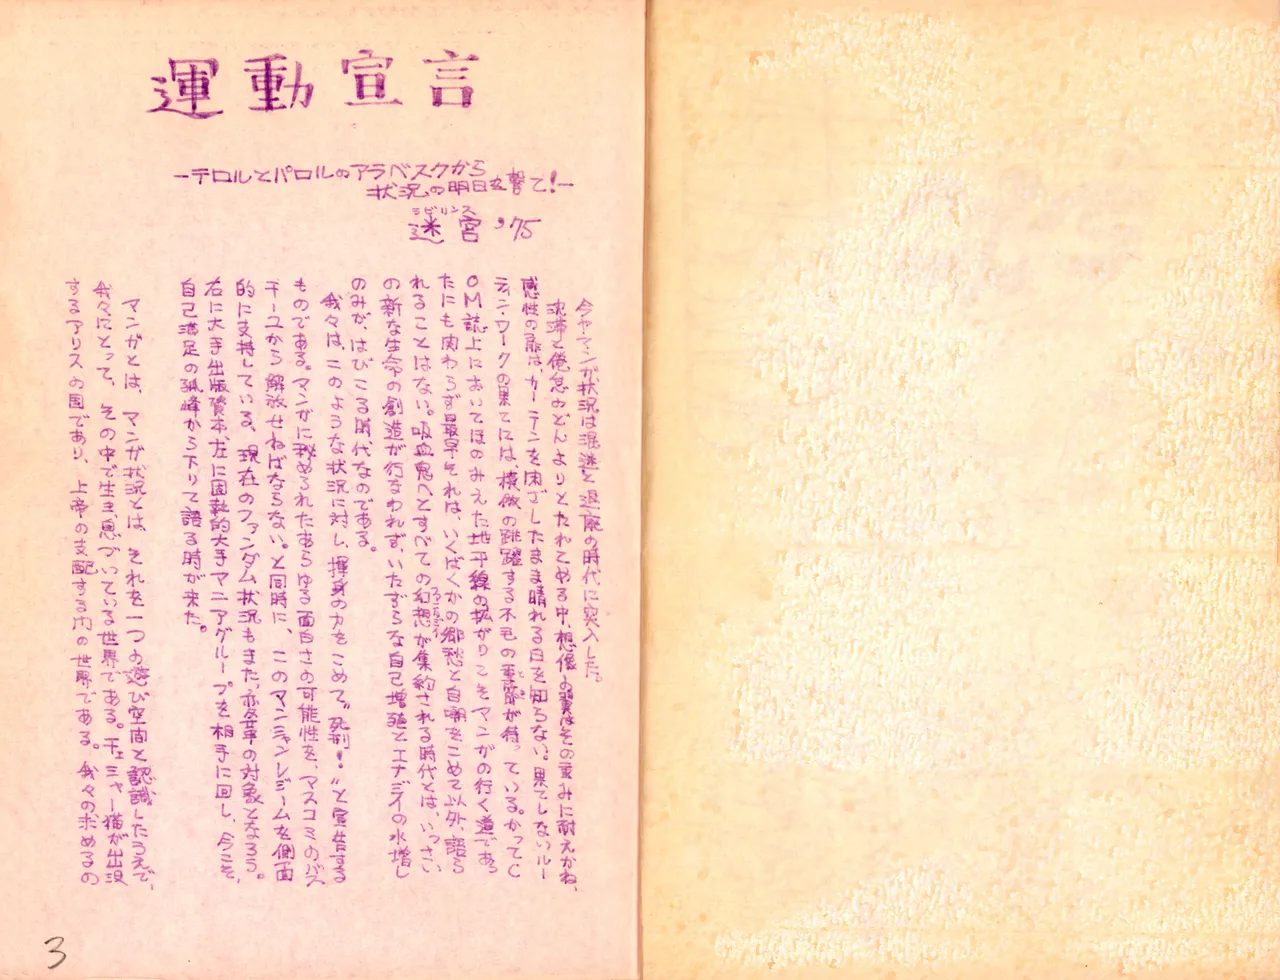 運動宣言
―テロルとパロルのアラベスクから
状況の明日を撃て!―
ラビリンス
迷宮'75
今やマンガ状況は混迷と退廃の時代に突入した。
沈滞と倦怠がどんよりとたれこめる中、想像の翼はその重みに耐えかね、
感性の扉は、カーテンを閉ざしたまま晴れる日を知らない。果てしないルー
ティン・ワークの果てには、模倣の跳躍する不毛の が待っている。かってC
OM誌上においてほのみえた地平線の拡がりこそマンガの行く道であっ
たにも関わらず最早それは、いくばくかの郷愁と自嘲をこめて以外、語ら
れることはない。吸血鬼へとすべての幻想が集約される時代とは、いっさい
の新な生命の創造が行なわれず、いたずらな自己増殖とエナジイの水増し
のみが、はびこる時代なのである。
我々は、このような状況に対し、揮身の力をこめて〝死刑!〟と宣告する
ものである。マンガに秘められたあらゆる面白さの可能性を、マスコミのバス
チーユから解放せねばならない。と同時に、このマンシャンレジームを側面
的に支持している、現在のファンダム状況もまた、変革の対象となろう。
右に大手出版資本、左に固執的大手マニアグループを相手に回し、今こそ、
自己満足の孤峰から下りて語る時が来た。
マンガとは、マンガ状況とは、それを一つの遊び空間と認識したうえで、
我々にとって、その中で生き、息づいている世界である。チェシャー猫が出没
するアリスの国であり、上帝の支配する内の世界である。我々の求めるの
3